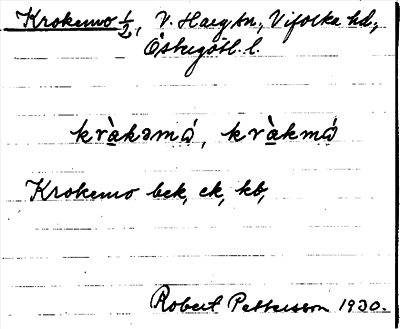 Krokemo 1/2, V. Harg sn, Vifolka hd,
Östergötl. l.
kràkəmó, kràkmó
Krokemo bek, ek, kb,
Robert Pettersson 1930.